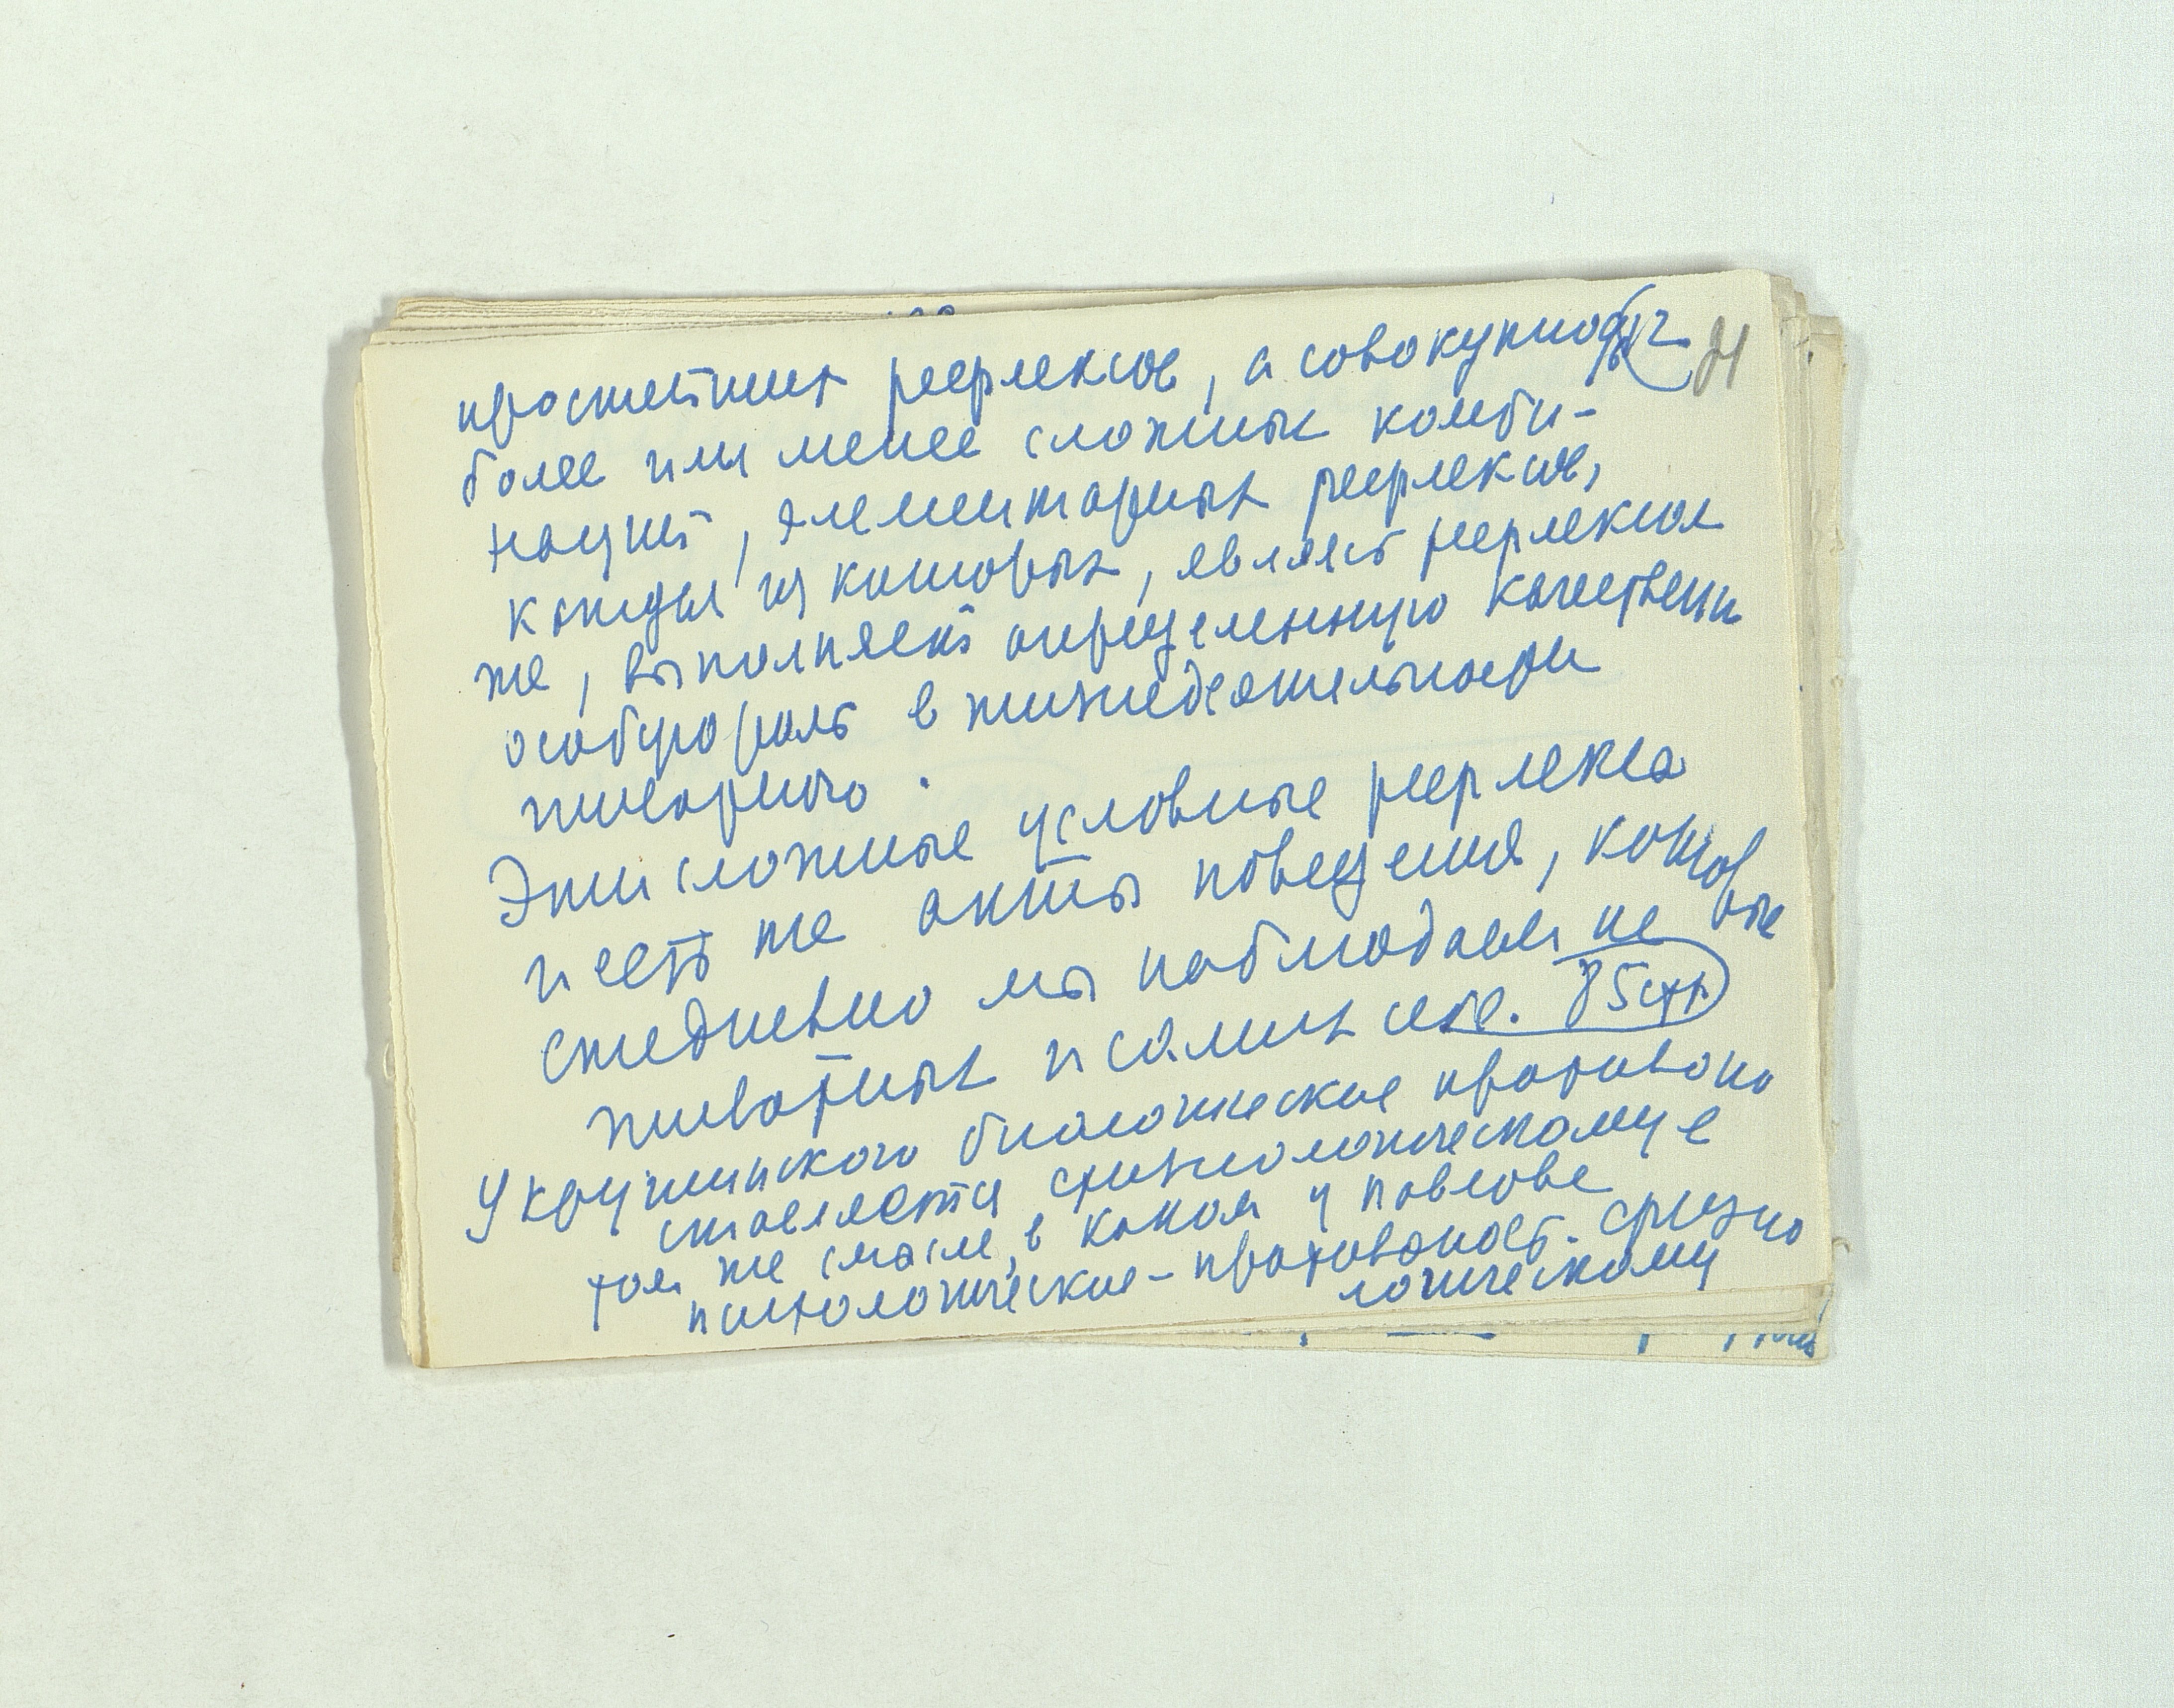 простейших рефлексов, а совокупность 21
более или менее сложных комби-
наций, элементарных рефлексов,
каждая из которых, являясь рефлексом
же, выполняет определенную качественно
особую роль в жизнедеятельности
животного.
Эти сложные условные рефлекса
и есть те акты поведения, которые
ежедневно мы наблюдаем на
животных и самих себе. 85 стр.
У Крушинского биологическое противопо
ставляется физиологическому в
том же смысле, в каком у Павлова
психологическое - противопост. физио
логическому